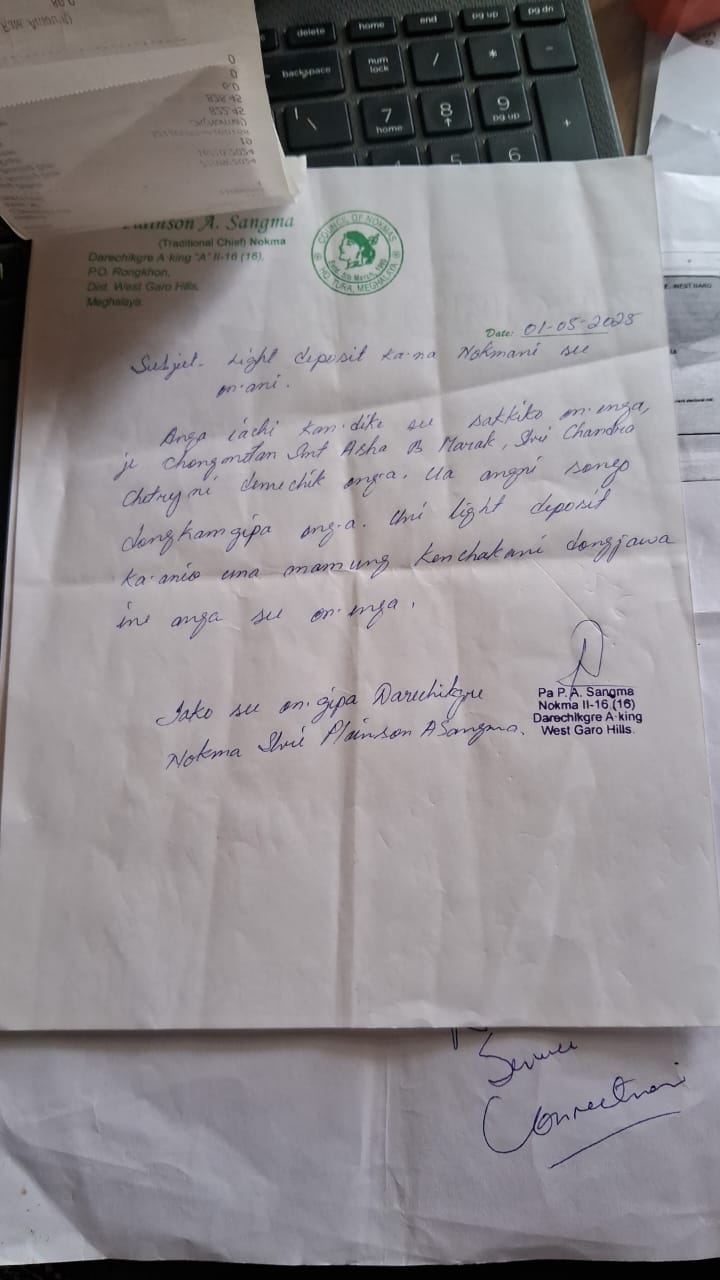 delete
home
end
pg up
pg dn
backspace
num lock
/
*
-
7 home
8
9 pg up
+
5
6
0
0
838.42
10
Plainson A. Sangma
(Traditional Chief) Nokma
Darechikgre A·king "A" II-16 (16),
P.O. Rongkhon,
Dist. West Garo Hills,
Meghalaya.
COUNCIL OF NOKMAS
HQ. TURA, MEGHALAYA
Date: 01-05-2025
Subjet- Light deposit ka·na Nokmani see
on·ani.
Anga iachi kan·dike see sakkiko on·enga,
je Chongmotan Smt Asha B Marak, Shri Chandra
Chetry ni demechik ong·a. Ua angni songo
dongkamgipa ong·a. Uni light deposit
ka·anio una mamung kenchakani dongjawa
ine anga see on·enga.
Iako see on·gipa Darechikgre
Nokma Shri Plainson A Sangma.
Pa P.A. Sangma
Nokma II-16 (16)
Darechikgre A·king
West Garo Hills.
WEST GARO
Service
Connection